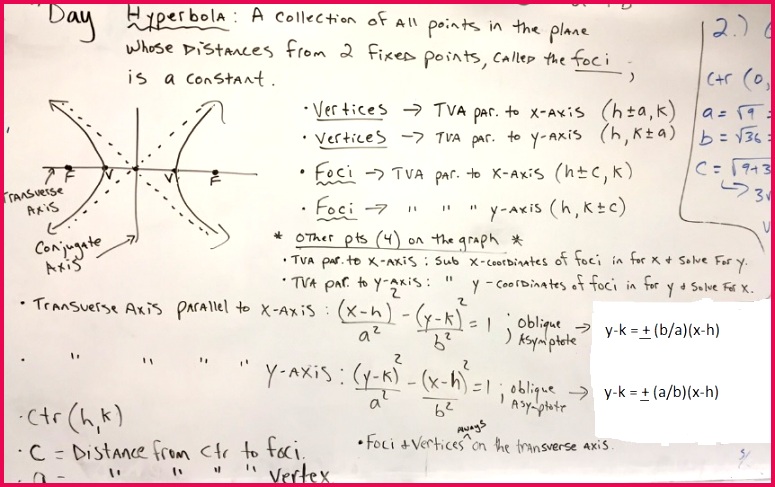 Day
Hyperbola: A collection of All points in the plane
whose Distances from 2 fixed points, called the foci,
is a constant.
2.)
Ctr (0,
a = √9 =
b = √36 =
c = √9+3
↳ 3√
F V V F
Transverse Axis
Conjugate Axis
• Vertices → TVA par. to x-Axis (h±a, k)
• Vertices → TVA par. to y-Axis (h, k±a)
• Foci → TVA par. to x-Axis (h±c, k)
• Foci → " " " y-Axis (h, k±c)
* Other pts (4) on the graph *
• TVA par. to x-Axis : Sub x-coordinates of foci in for x & Solve For y.
• TVA par. to y-Axis : " y-coordinates of foci in for y & Solve For x.
• Transverse Axis parallel to x-Axis : (x-h)²/a² - (y-k)²/b² = 1 ; oblique Asymptote → y-k = ± (b/a)(x-h)
• " " " y-Axis : (y-k)²/a² - (x-h)²/b² = 1 ; oblique Asymptote → y-k = ± (a/b)(x-h)
• Ctr (h, k)
• C = Distance from Ctr to foci.
• Foci & Vertices always on the transverse axis.
• a = " " " " vertex